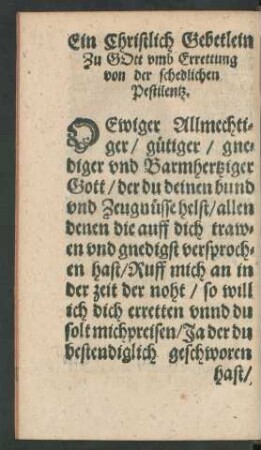 Ein Christlich Gebetlein
Zu GOtt vmb Errettung
von der schedlichen
Pestilentz.
O Ewiger Allmechti-
ger / gütiger / gne-
diger vnd Barmhertziger
Gott / der du deinen bund
vnd Zeugnüsse helst / allen
denen die auff dich traw-
en vnd gnedigst versproch-
en hast / Ruff mich an in
der zeit der noht / so will
ich dich erretten vnnd du
solt mich preisen / Ja der du
bestendiglich geschworen
hast /